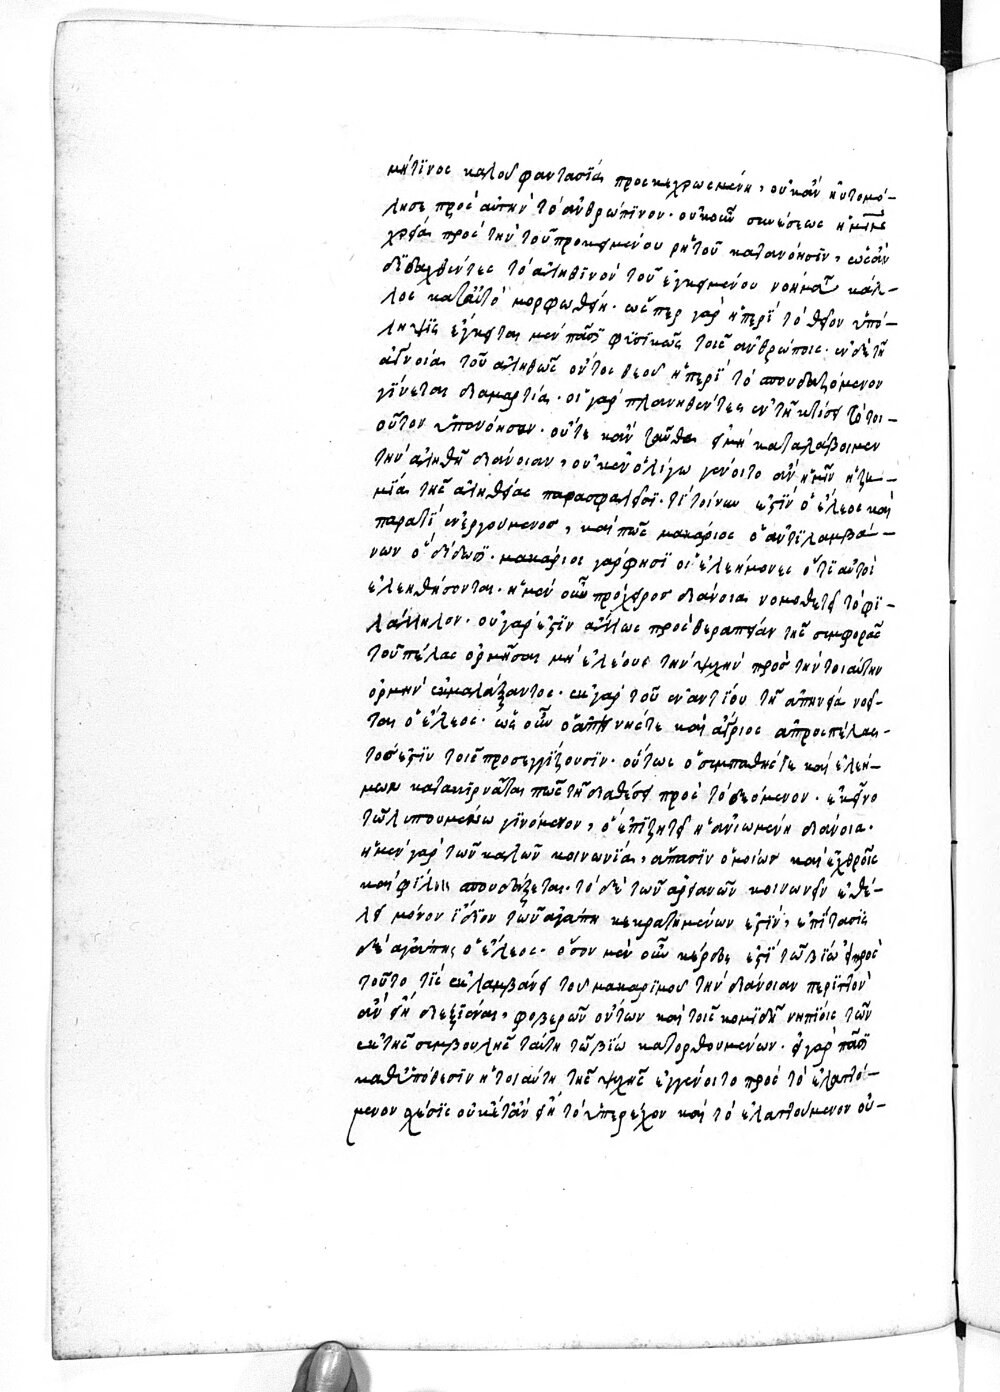 μήτινος καλοῦ φαντασία προσκεχρωσμένη, οὐκ ἂν ηὐτομό-
λησε πρὸς αὐτὴν τὸ ἀνθρώπινον. οὐκοῦν συνέσεως ἡμῖν
χρεία πρὸς τὴν τοῦ προκειμένου ῥητοῦ κατανόησιν, ὡς ἂν
διδαχθέντες τὸ ἀληθινὸν τοῦ ἐγκειμένου νοήματος κάλ-
λος κατ' αὐτὸ μορφωθῆναι. ὥσπερ γὰρ ἡ περὶ τὸ θεῖον ὑπό-
ληψις ἔγκειται μὲν πᾶσι φυσικῶς τοῖς ἀνθρώποις. ἐν δὲ τῇ
ἀγνοίᾳ τοῦ ἀληθῶς ὄντος θεοῦ ἡ περὶ τὸ σπουδαζόμενον
γίνεται διαμαρτία. οἱ γὰρ πλανηθέντες ἐν τῇ κτίσει τὸ τοι-
οῦτον ὑπενόησαν. οὕτε κἀνταῦθα εἰ μὴ καταλάβοιμεν
τὴν ἀληθῆ διάνοιαν, οὐκ ἐν ὀλίγῳ γένοιτο ἂν ἡμῖν ἡ ζη-
μία τῆς ἀληθείας παρασφαλεῖσι. τί τοίνυν ἐστὶν ὁ ἔλεος καὶ
παρὰ τί ἐνεργούμενος, καὶ πῶς μακάριος ὁ ἀντιλαμβά-
νων ὃ δίδωσι. μακάριοι γάρ φησι οἱ ἐλεήμονες ὅτι αὐτοὶ
ἐλεηθήσονται. ἡ μὲν οὖν πρόχειρος διάνοια νομοθετεῖ τὸ φι-
λάλληλον. οὐ γάρ ἐστιν ἄλλως πρὸς θεραπείαν τῆς συμφορᾶς
τοῦ πέλας ὁρμῆσαι μὴ ἐλέους τὴν ψυχὴν πρὸς τὴν τοιαύτην
ὁρμὴν ἐκμαλάξαντος. ἐκ γὰρ τοῦ ἐναντίου τῇ ἀπηνείᾳ νοεῖ-
ται ὁ ἔλεος. ὡς οὖν ὁ ἀπηνής τε καὶ ἄγριος ἀπροσπέλασ-
τός ἐστιν τοῖς προσεγγίζουσιν. οὕτως ὁ συμπαθής τε καὶ ἐλεή-
μων κατακιρνᾶταί πως τῇ διαθέσει πρὸς τὸ δεόμενον. ἐκεῖνο
τῷ λυπουμένῳ γινόμενον, ὃ ἐπιζητεῖ ἡ ἀνιωμένη διάνοια.
ἡ μὲν γὰρ τῶν καλῶν κοινωνία, ἅπασιν ὁμοίως καὶ ἐχθροῖς
καὶ φίλοις σπουδάζεται. τὸ δὲ τῶν ἀλγεινῶν κοινωνεῖν ἐθέ-
λειν μόνον ἴδιον τῶν ἀγάπῃ κεκρατημένων ἐστίν, ἐπίτασις
δὲ ἀγάπης ὁ ἔλεος. ὅσον μὲν οὖν κέρδος ἐστὶ τῷ βίῳ εἰ πρὸς
τοῦτο τις ἐκλαμβάνει τοῦ μακαρισμοῦ τὴν διάνοιαν περιττὸν
ἂν εἴη διεξιέναι, φανερῶν ὄντων καὶ τοῖς κομιδῇ νηπίοις τῶν
ἐκ τῆς συμβουλῆς ταύτῃ τῷ βίῳ κατορθουμένων. εἰ γὰρ πᾶσι
καθ' ὑπόθεσιν ἡ τοιαύτη τῆς ψυχῆς ἐγγένοιτο πρὸς τὸ ἐλαττού-
μενον σχέσις οὐκέτ' ἂν εἴη τὸ ὑπερέχον καὶ τὸ ἐλαττούμενον οὐ-